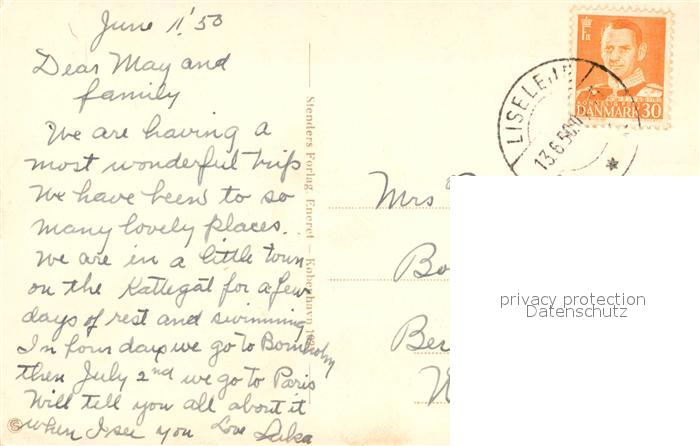 June 11' 50
Dear May and
family
We are having a
most wonderful trip
We have been to so
many lovely places.
We are in a little town
on the Kattegat for a few
days of rest and swimming
In four days we go to Bornholm
then July 2nd we go to Paris
Will tell you all about it
when I see you Love
Stenders Forlag Eneret – København
LISELEJE
13.6.50
DANMARK 30
Mrs
Bo
Be
privacy protection
Datenschutz